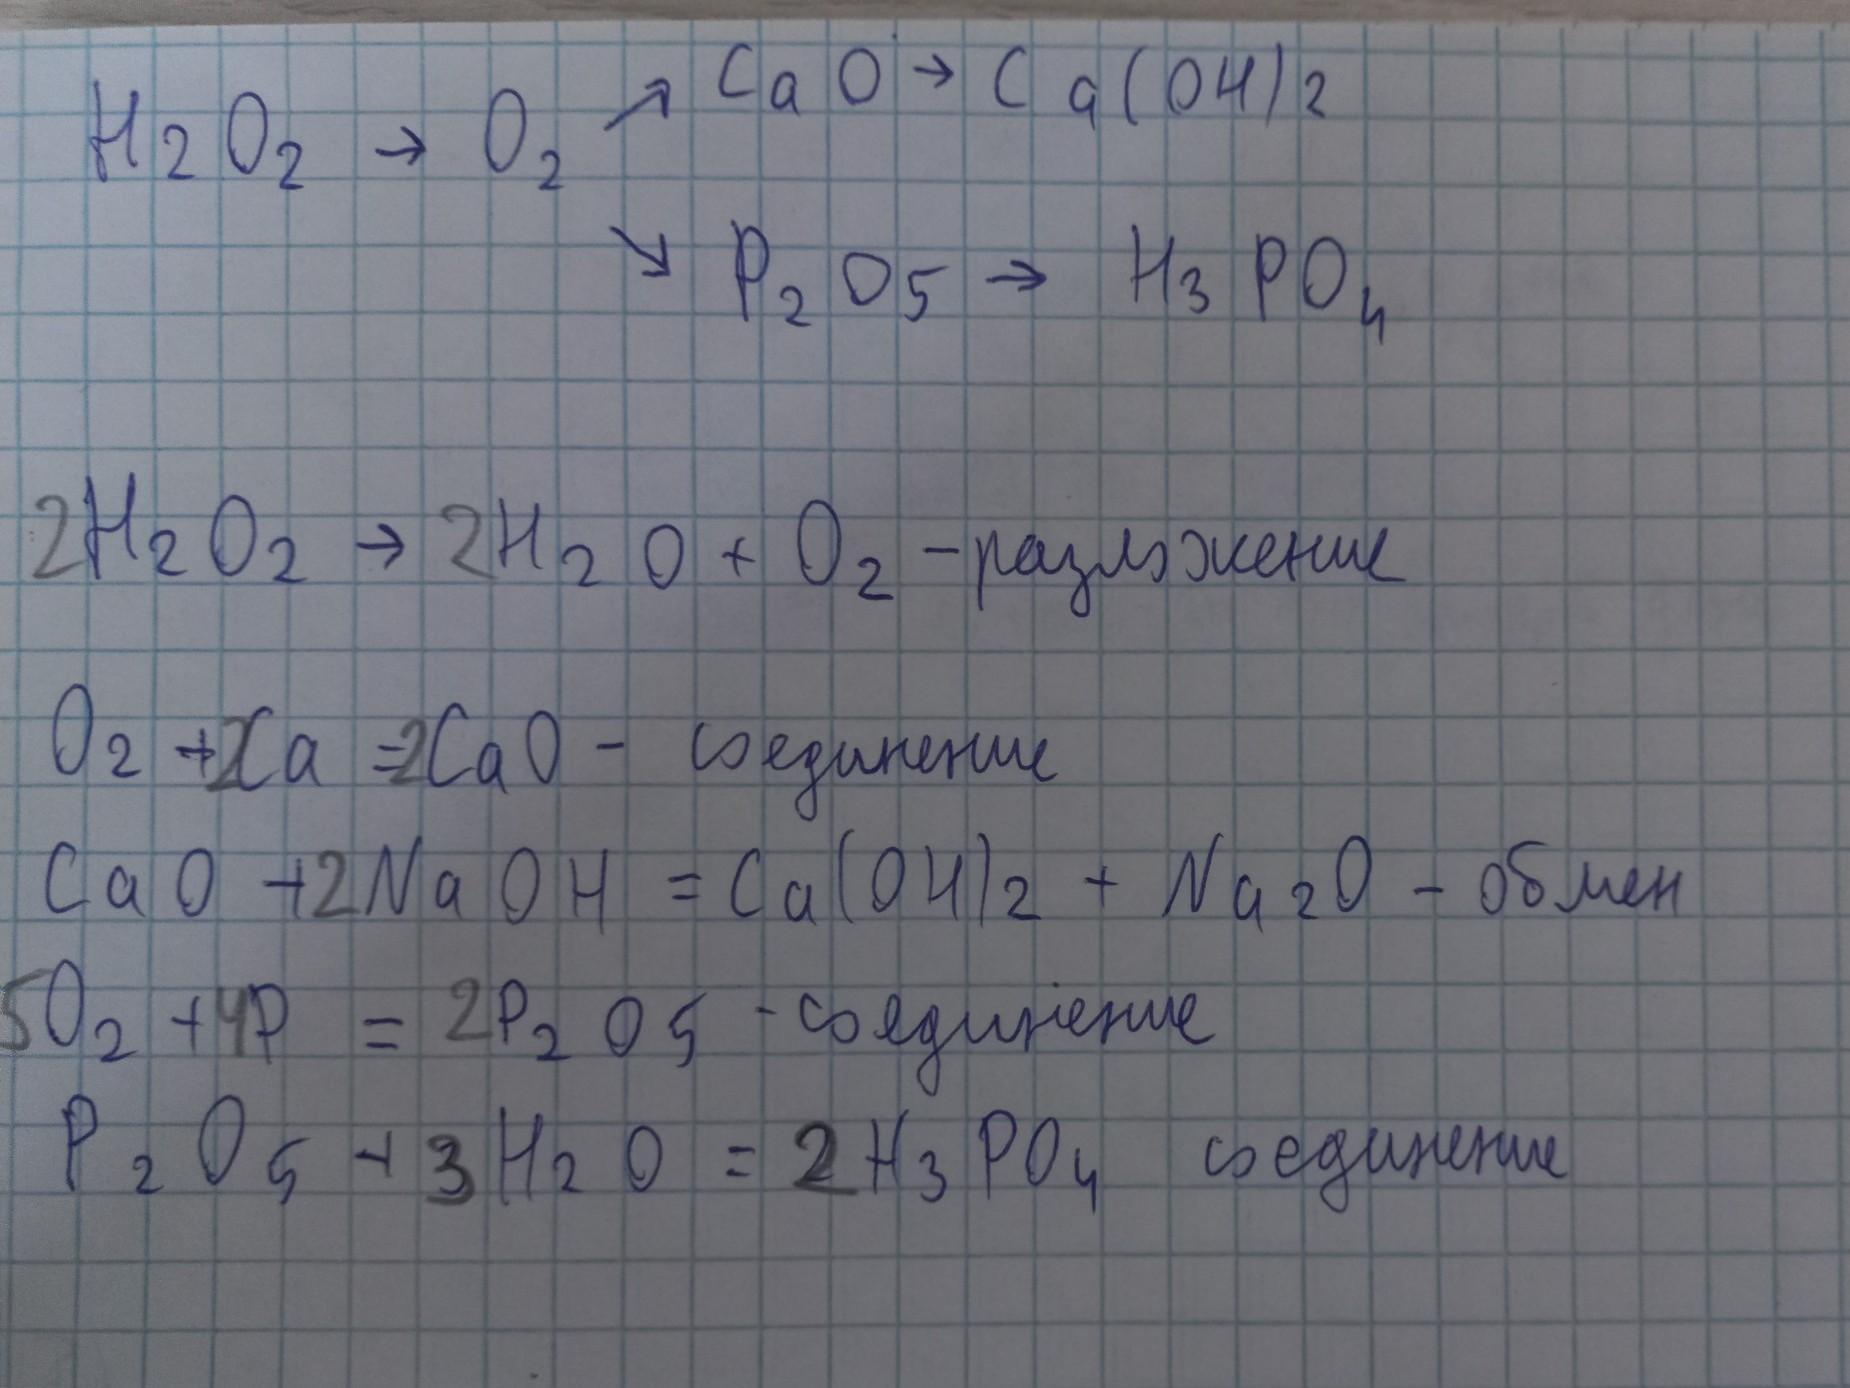 H2O2 → O2 ↗ CaO → Ca(OH)2
↘ P2O5 → H3PO4
2H2O2 → 2H2O + O2 - разложение
O2 + 2Ca = 2CaO - соединение
CaO + 2NaOH = Ca(OH)2 + Na2O - обмен
5O2 + 4P = 2P2O5 - соединение
P2O5 + 3H2O = 2H3PO4 соединение